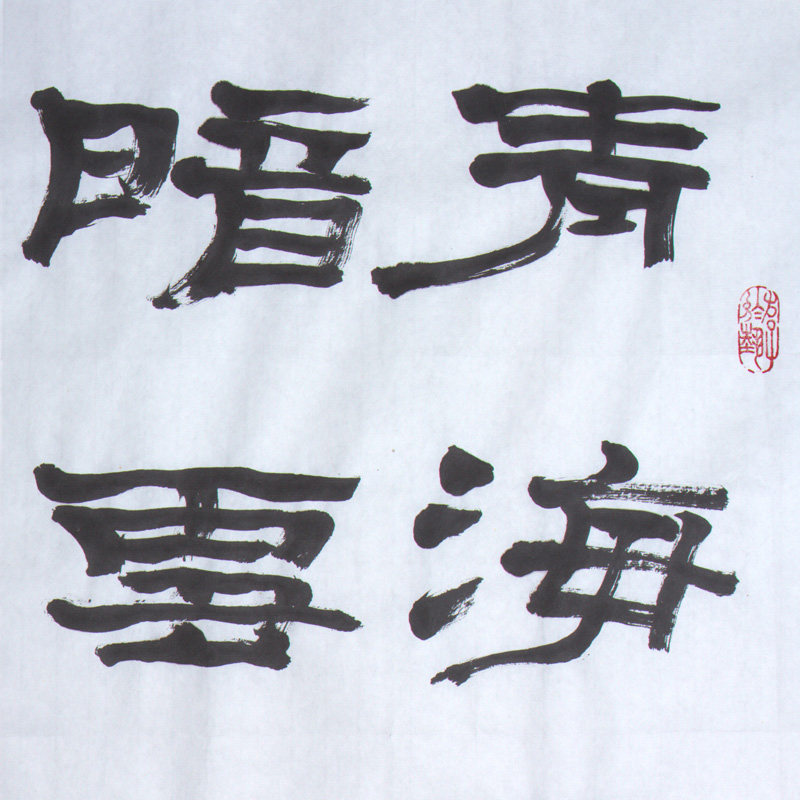 青海
暗雲